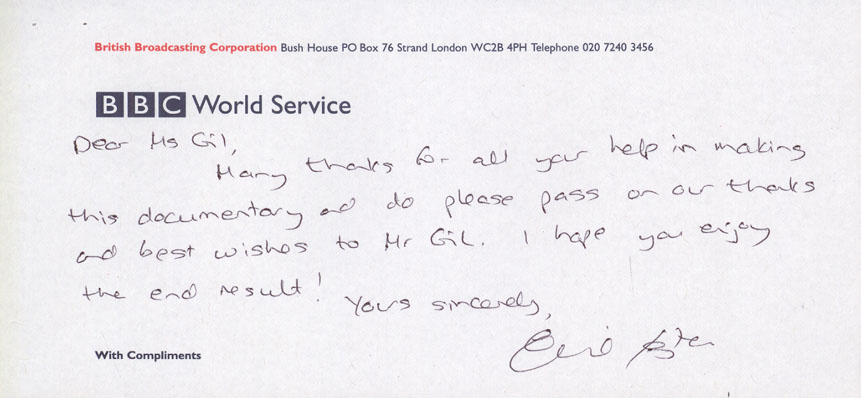 British Broadcasting Corporation Bush House PO Box 76 Strand London WC2B 4PH Telephone 020 7240 3456
BBC World Service
Dear Ms Gil,
Many thanks for all your help in making
this documentary and do please pass on our thanks
and best wishes to Mr Gil. I hope you enjoy
the end result!
Yours sincerely,
With Compliments